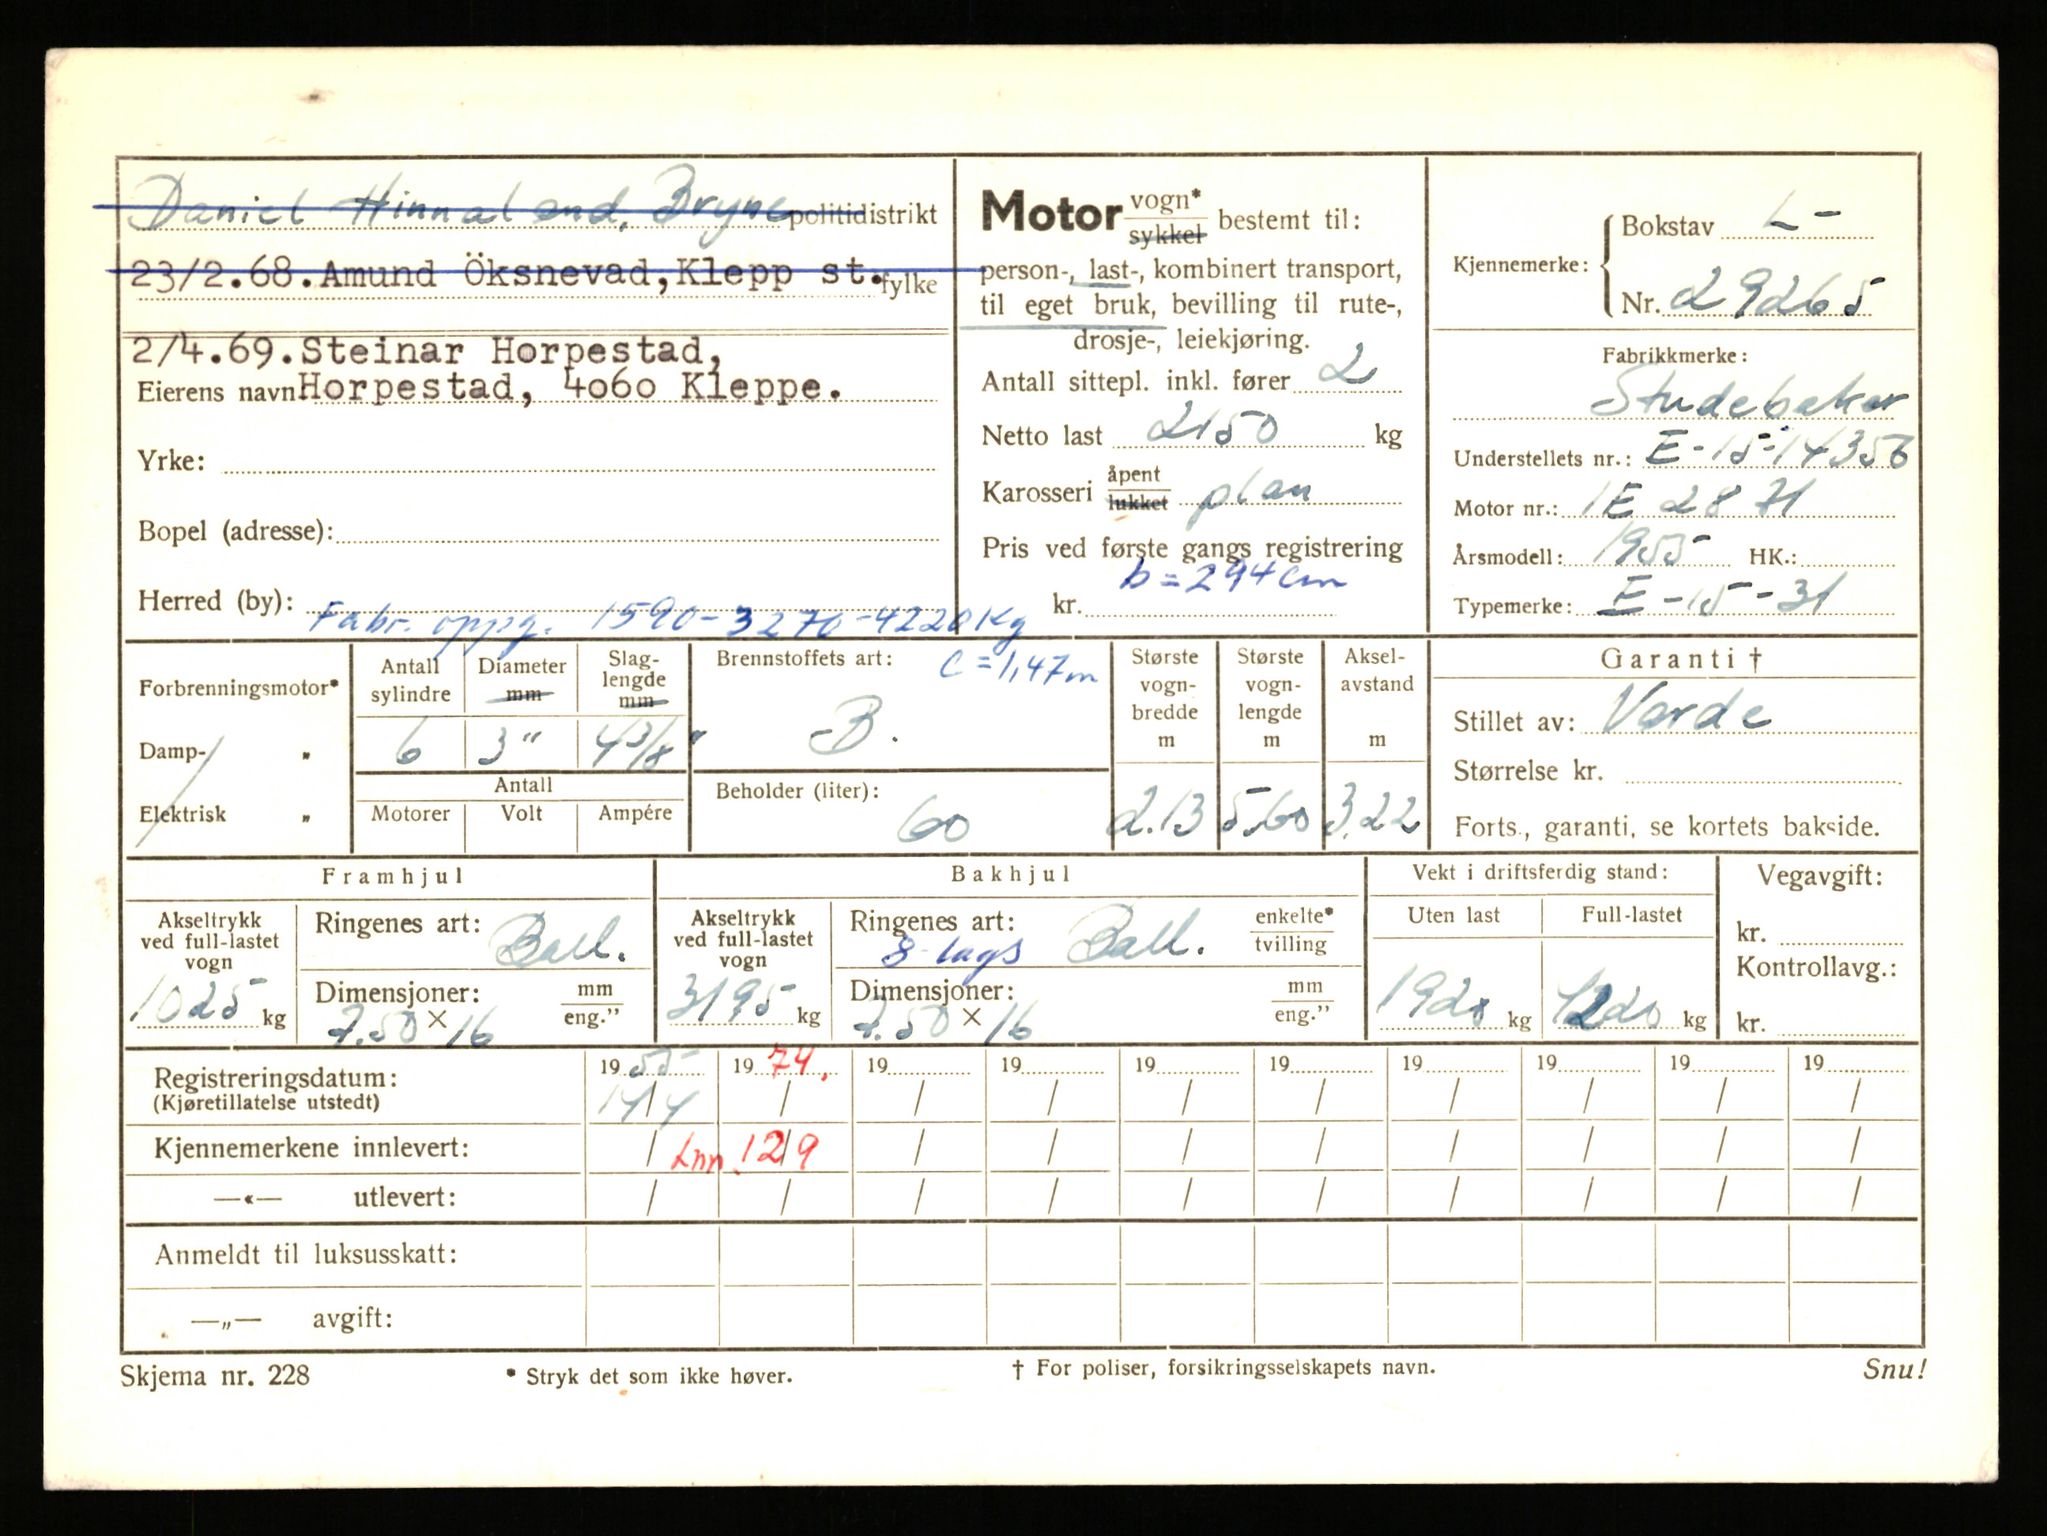 Daniel Hinnaland, Bryne politidistrikt
23/2.68. Amund Öksnevad, Klepp st. fylke
2/4.69. Steinar Horpestad,
Eierens navn Horpestad, 4060 Kleppe.
Yrke:
Bopel (adresse):
Herred (by):
Fabr. oppg. 1590-3270-4220 Kg
Motor vogn* sykkel bestemt til:
person-, last-, kombinert transport,
til eget bruk, bevilling til rute-,
drosje-, leiekjøring.
Antall sittepl. inkl. fører 2
Netto last 2150 kg
Karosseri åpent lukket plan
Pris ved første gangs registrering
b = 294 cm
kr.
Kjennemerke: Bokstav L-
Nr. 29265
Fabrikkmerke:
Studebaker
Understellets nr.: E-15-14356
Motor nr.: 1E 28 71
Årsmodell: 1955 HK.:
Typemerke: E-15-31
Forbrenningsmotor*
Damp- „
Elektrisk „
Antall sylindre 6
Diameter mm 3"
Slaglengde mm 4 3/8"
Antall
Motorer Volt Ampére
Brennstoffets art: c = 1,47 m
B.
Beholder (liter):
60
Største vognbredde m 2.13
Største vognlengde m 5.60
Akselavstand m 3.22
Garanti †
Stillet av: Varde
Størrelse kr.
Forts., garanti, se kortets bakside.
Framhjul
Akseltrykk ved full-lastet vogn
1025 kg
Ringenes art: Ball.
Dimensjoner: mm eng."
7.50 × 16
Bakhjul
Akseltrykk ved full-lastet vogn
3195 kg
Ringenes art: enkelte* tvilling
8-lags Ball.
Dimensjoner: mm eng."
7.50 × 16
Vekt i driftsferdig stand:
Uten last Full-lastet
1920 kg 4220 kg
Vegavgift:
kr.
Kontrollavg.:
kr.
Registreringsdatum: 1955 1974. 19 19 19 19 19 19 19 19
(Kjøretillatelse utstedt) 14/4 / / / / / / / / /
Kjennemerkene innlevert: / Inn. 12/9 / / / / / / / /
—«— utlevert: / / / / / / / / / /
Anmeldt til luksusskatt:
—„— avgift:
Skjema nr. 228 * Stryk det som ikke høver. † For poliser, forsikringsselskapets navn. Snu!